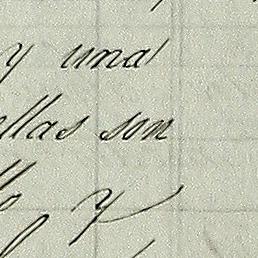 y una
ellas son
y